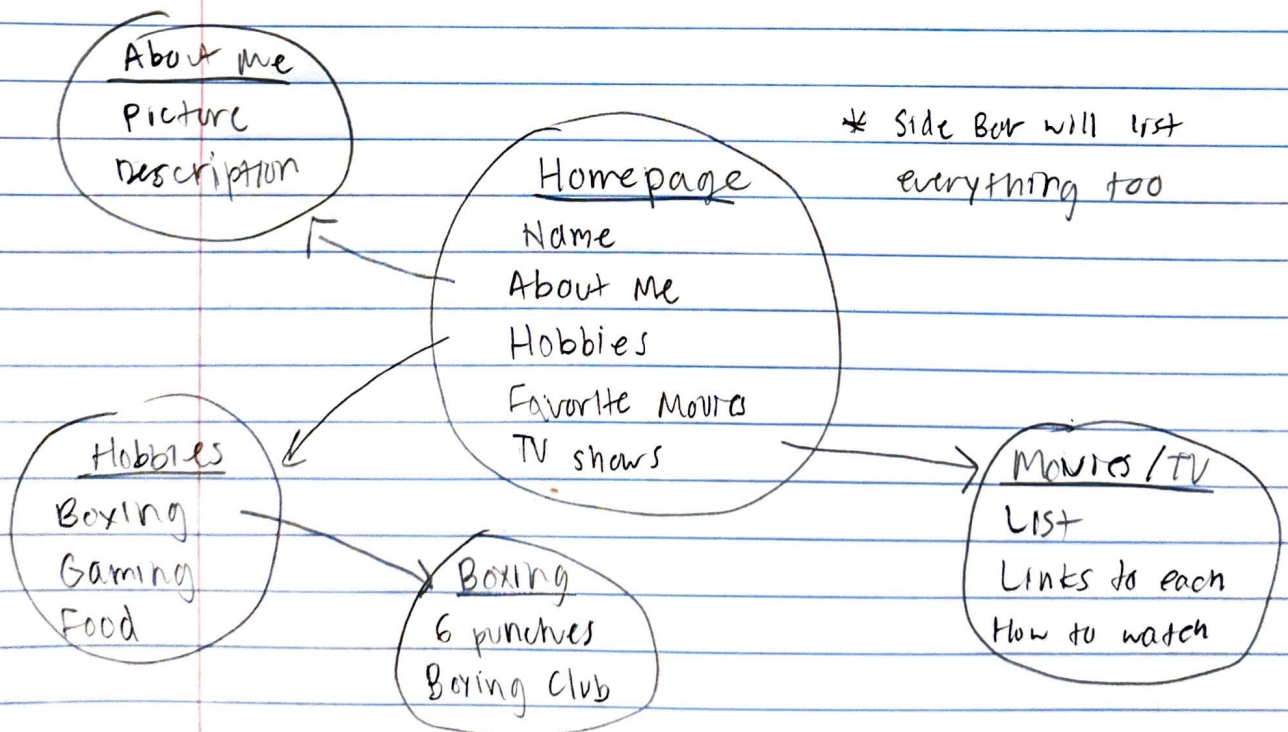 About Me
Picture
Description
Homepage
Name
About Me
Hobbies
Favorite Movies
TV shows
* Side Bar will list
everything too
Hobbies
Boxing
Gaming
Food
Boxing
6 punches
Boxing Club
Movies / TV
List
Links to each
How to watch